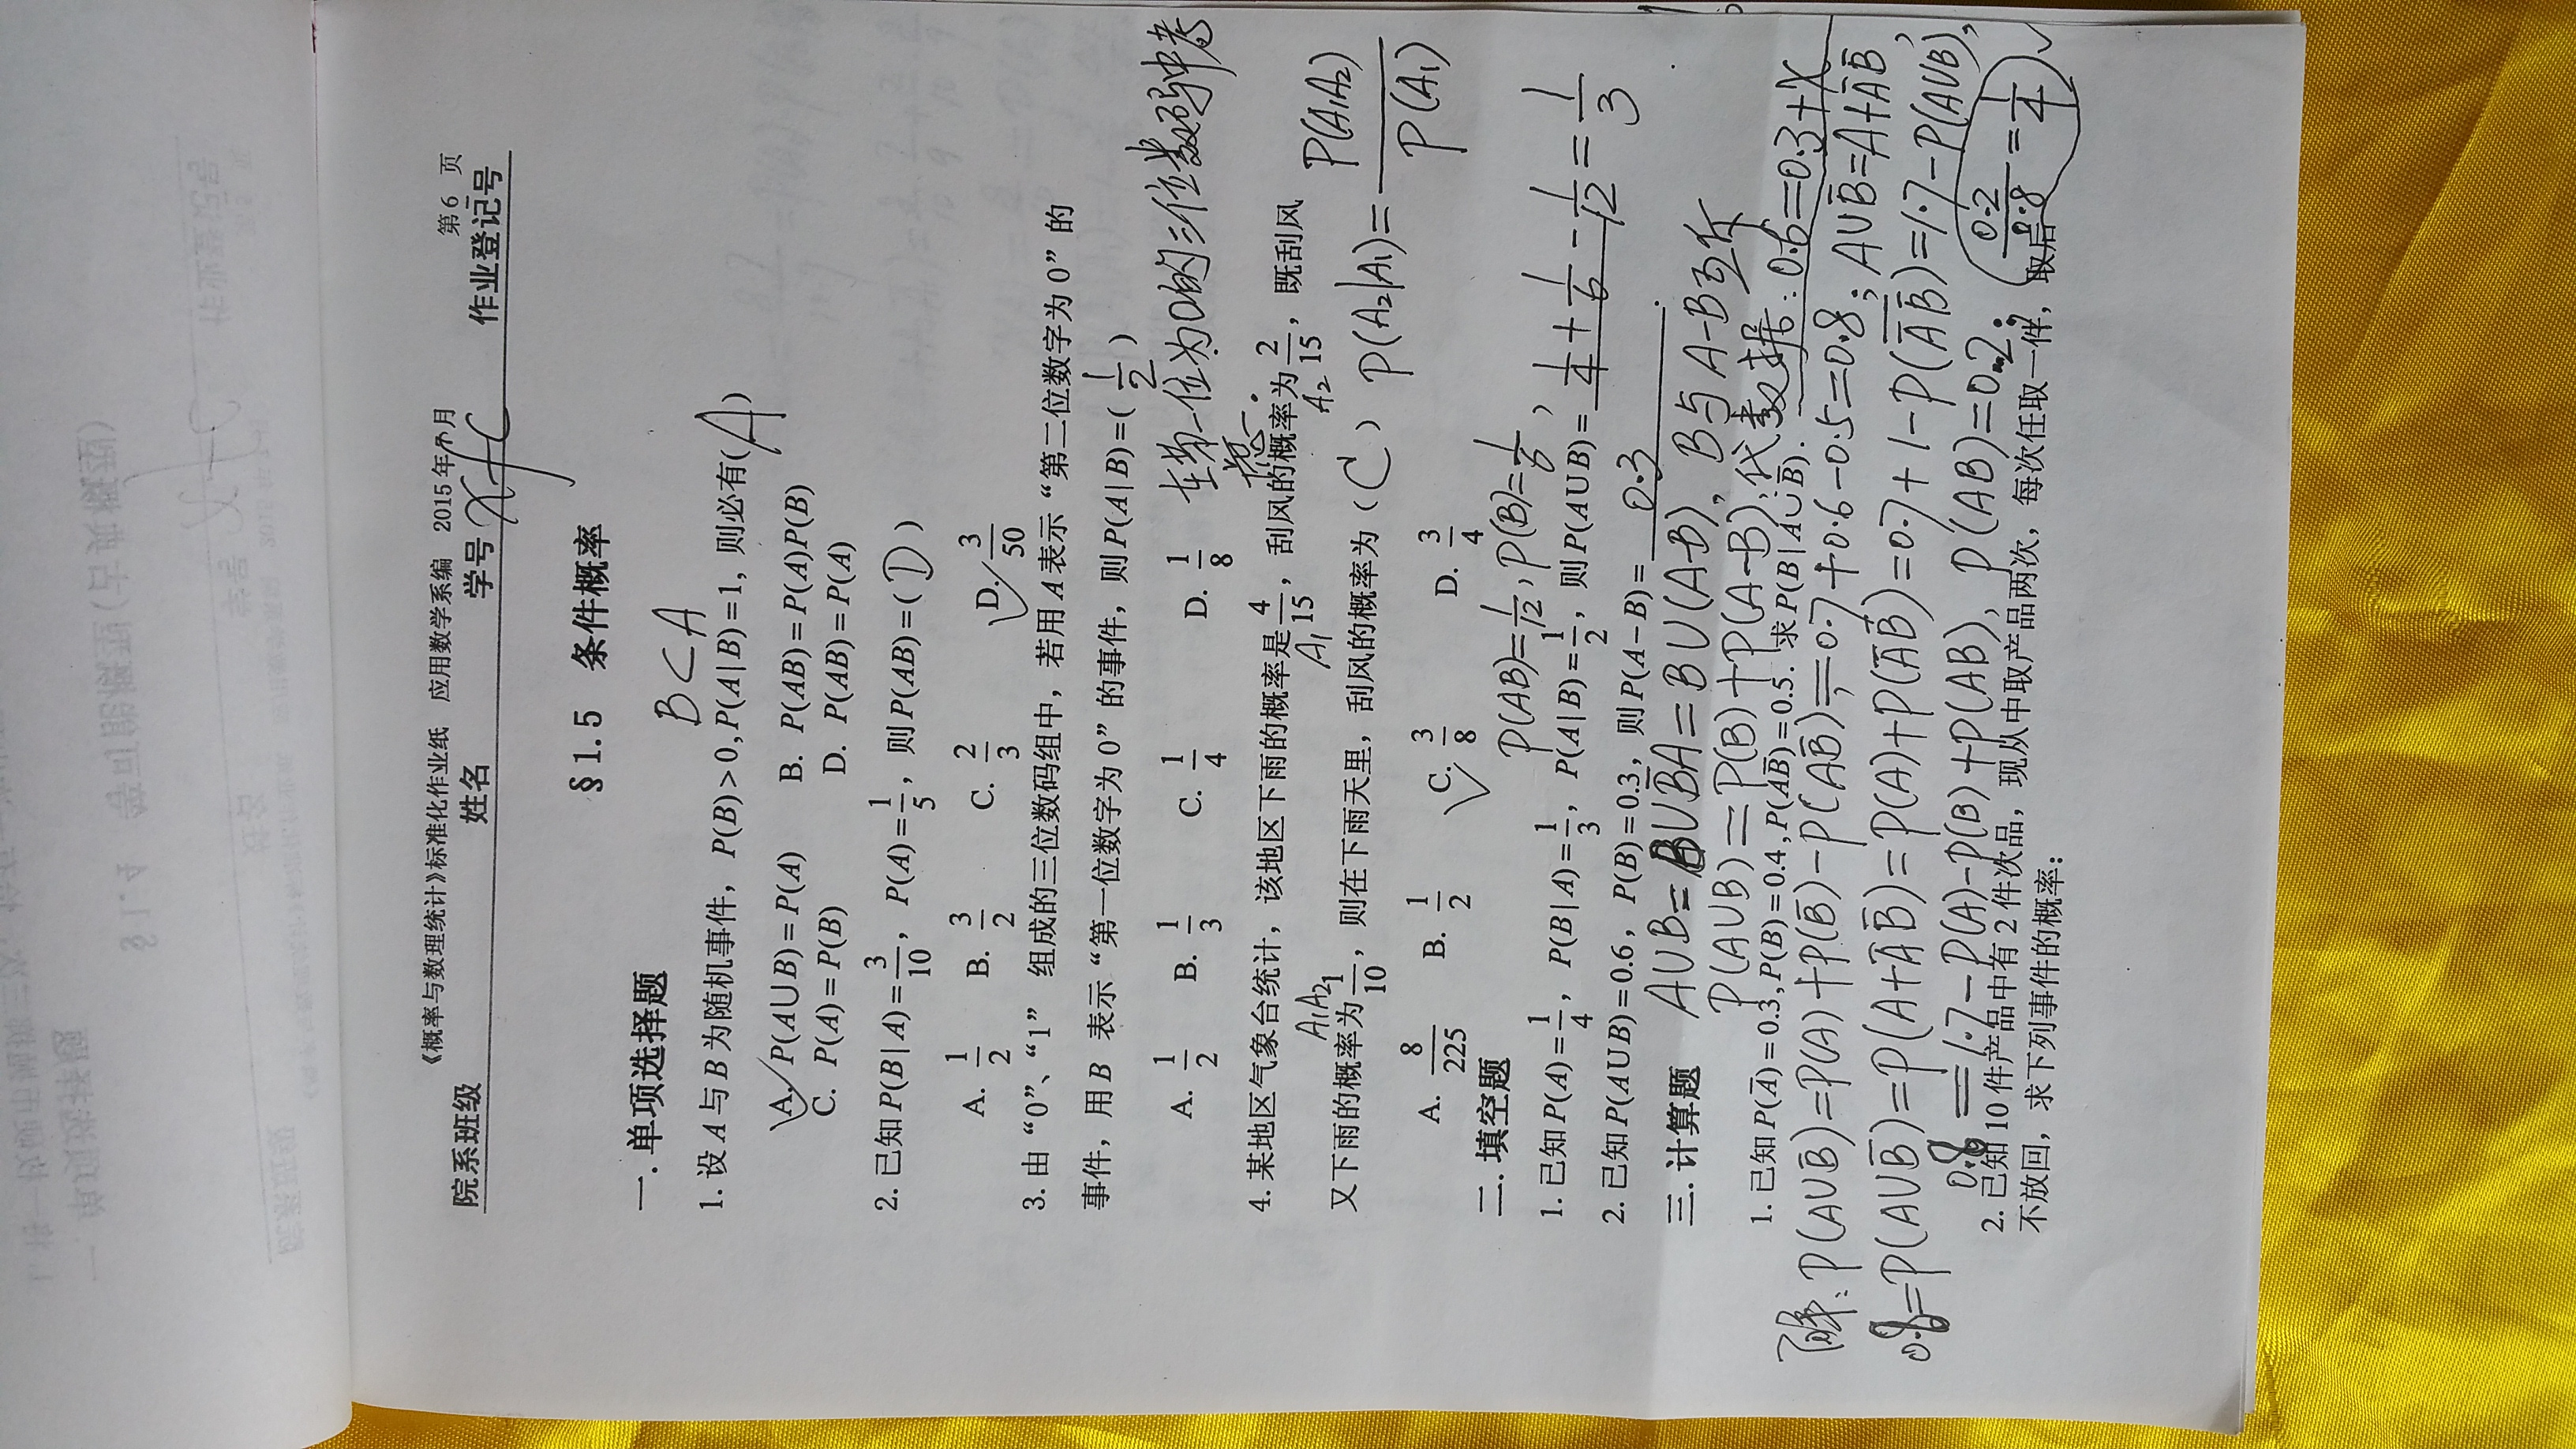 《概率与数理统计》标准化作业纸 应用数学系编 2015年7月 第6页
院系班级 姓名 学号 xfc 作业登记号
§1.5 条件概率
一.单项选择题
B⊂A
1.设A与B为随机事件，P(B)>0,P(A|B)=1,则必有(A)
A. P(A∪B)=P(A) B. P(AB)=P(A)P(B)
C. P(A)=P(B) D. P(AB)=P(A)
2.已知P(B|A)=3/10，P(A)=1/5，则P(AB)=(D)
A. 1/2 B. 3/2 C. 2/3 D. 3/50
3.由“0”、“1” 组成的三位数码组中，若用A表示“第二位数字为0”的
事件，用B 表示“第一位数字为0”的事件，则P(A|B)=(1/2)
A. 1/2 B. 1/3 C. 1/4 D. 1/8 在第一位为0的三位数码中考
虑.
4.某地区气象台统计，该地区下雨的概率是4/15，刮风的概率为2/15，既刮风
A₁A₂ A₁ A₂
又下雨的概率为1/10，则在下雨天里，刮风的概率为（C） P(A₂|A₁)=P(A₁A₂)/P(A₁)
A. 8/225 B. 1/2 C. 3/8 D. 3/4
二.填空题
P(AB)=1/12, P(B)=1/6,
1.已知P(A)=1/4，P(B|A)=1/3，P(A|B)=1/2，则P(A∪B)=1/4+1/6-1/12=1/3
2.已知P(A∪B)=0.6，P(B)=0.3，则P(A-B)=0.3.
三.计算题 A∪B=B∪B̄A=B∪(A-B), B与A-B互斥
P(A∪B)=P(B)+P(A-B),代数据:0.6=0.3+x
1.已知P(Ā)=0.3,P(B)=0.4,P(AB̄)=0.5. 求P(B|A∪B̄).
解:P(A∪B̄)=P(A)+P(B̄)-P(AB̄)=0.7+0.6-0.5=0.8; A∪B̄=A+ĀB̄,
0.8=P(A∪B̄)=P(A+ĀB̄)=P(A)+P(ĀB̄)=0.7+1-P(\overline{ĀB̄})=1.7-P(A∪B),
0.8=1.7-P(A)-P(B)+P(AB), P(AB)=0.2; 0.2/0.8=1/4
2.已知10件产品中有2件次品，现从中取产品两次，每次任取一件，取后
不放回，求下列事件的概率：